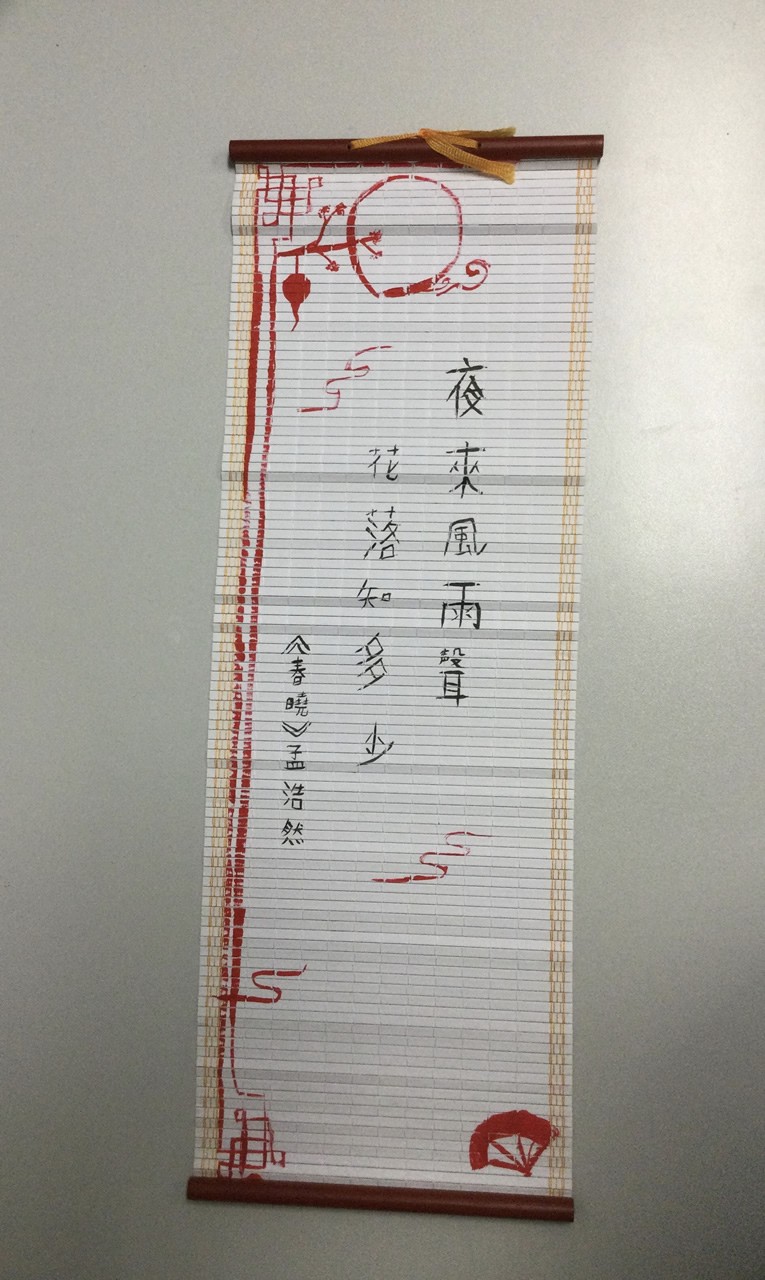 夜來風雨聲
花落知多少
《春曉》孟浩然